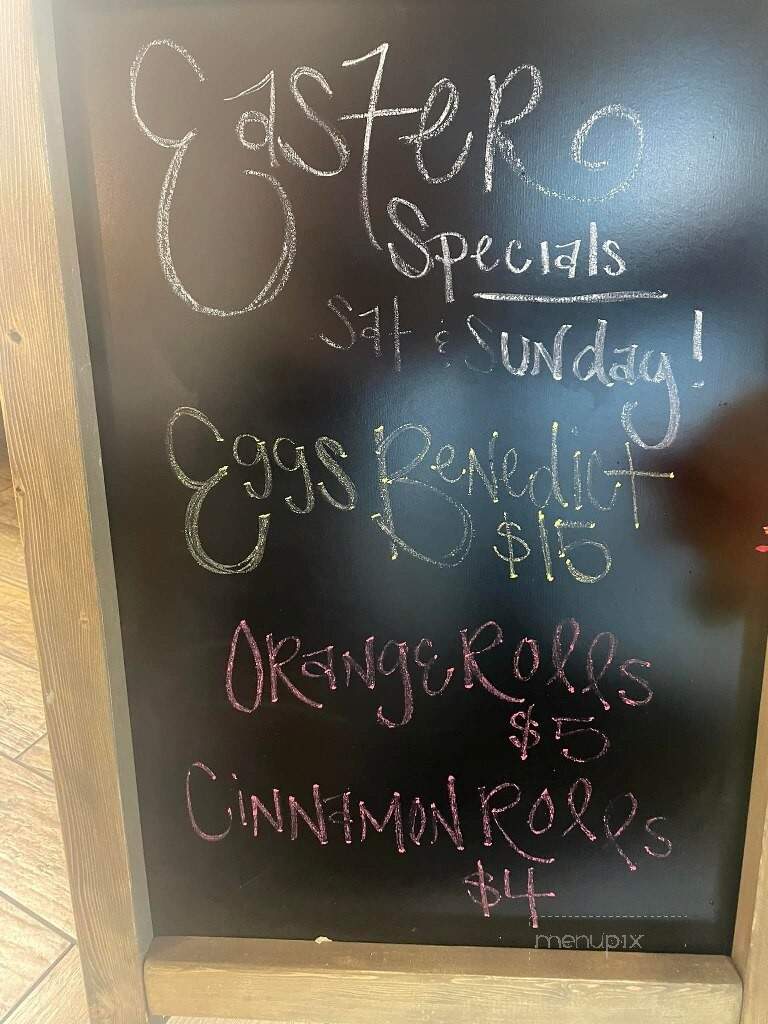 Easter
Specials
Sat & Sunday!
Eggs Benedict
$15
Orange Rolls
$5
Cinnamon Rolls
$4
menupix